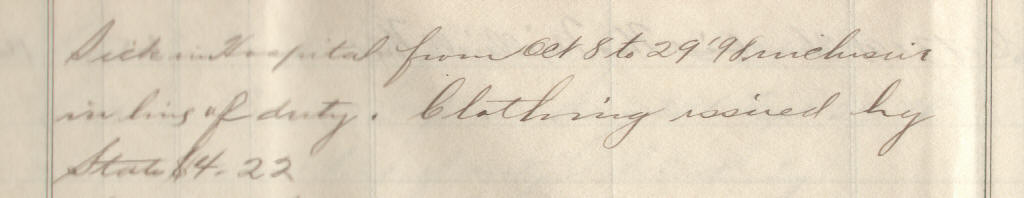 Sick in Hospital from Oct 8 to 29 '98 inclusive
in line of duty. Clothing issued by
State $4.22